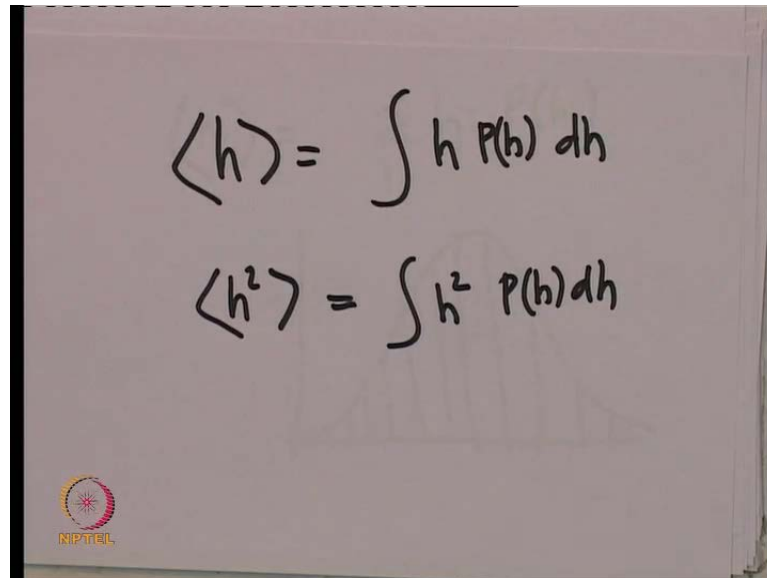 ⟨h⟩ = ∫ h P(h) dh
⟨h²⟩ = ∫ h² P(h) dh
NPTEL